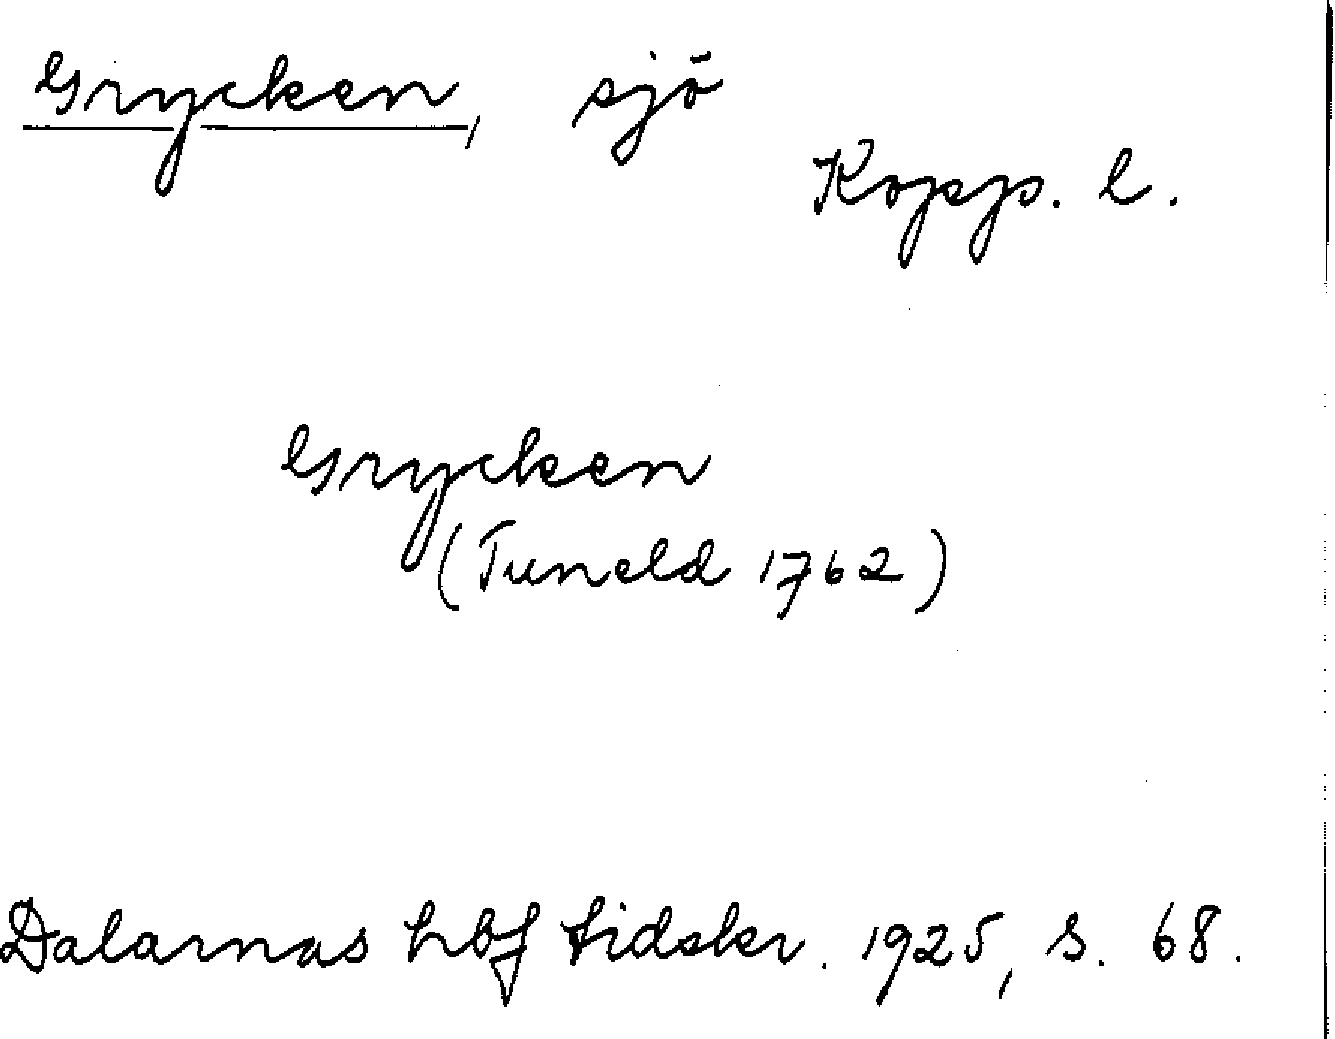 Grycken, sjö
Kopp. l.
Grycken
(Tuneld 1762)
Dalarnas hbf tidskr. 1925, s. 68.